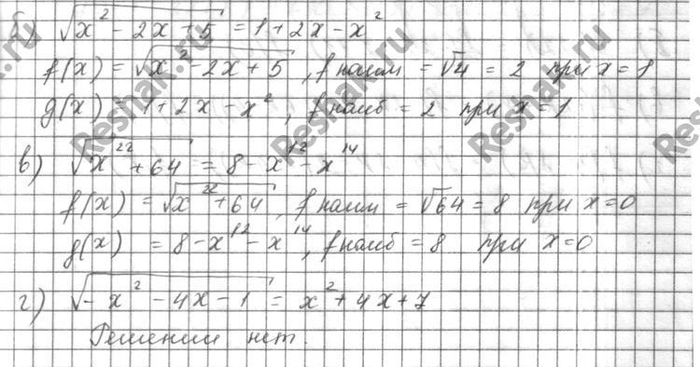 б) √(x² - 2x + 5) = 1 + 2x - x²
f(x) = √(x² - 2x + 5), f наим = √4 = 2 при x = 1
g(x) = 1 + 2x - x², f наиб = 2 при x = 1
в) √(x²² + 64) = 8 - x¹² - x¹⁴
f(x) = √(x²² + 64), f наим = √64 = 8 при x = 0
g(x) = 8 - x¹² - x¹⁴, f наиб = 8 при x = 0
г) √(-x² - 4x - 1) = x² + 4x + 7
Решений нет.
Reshak.ru
Reshak.ru
Reshak.ru